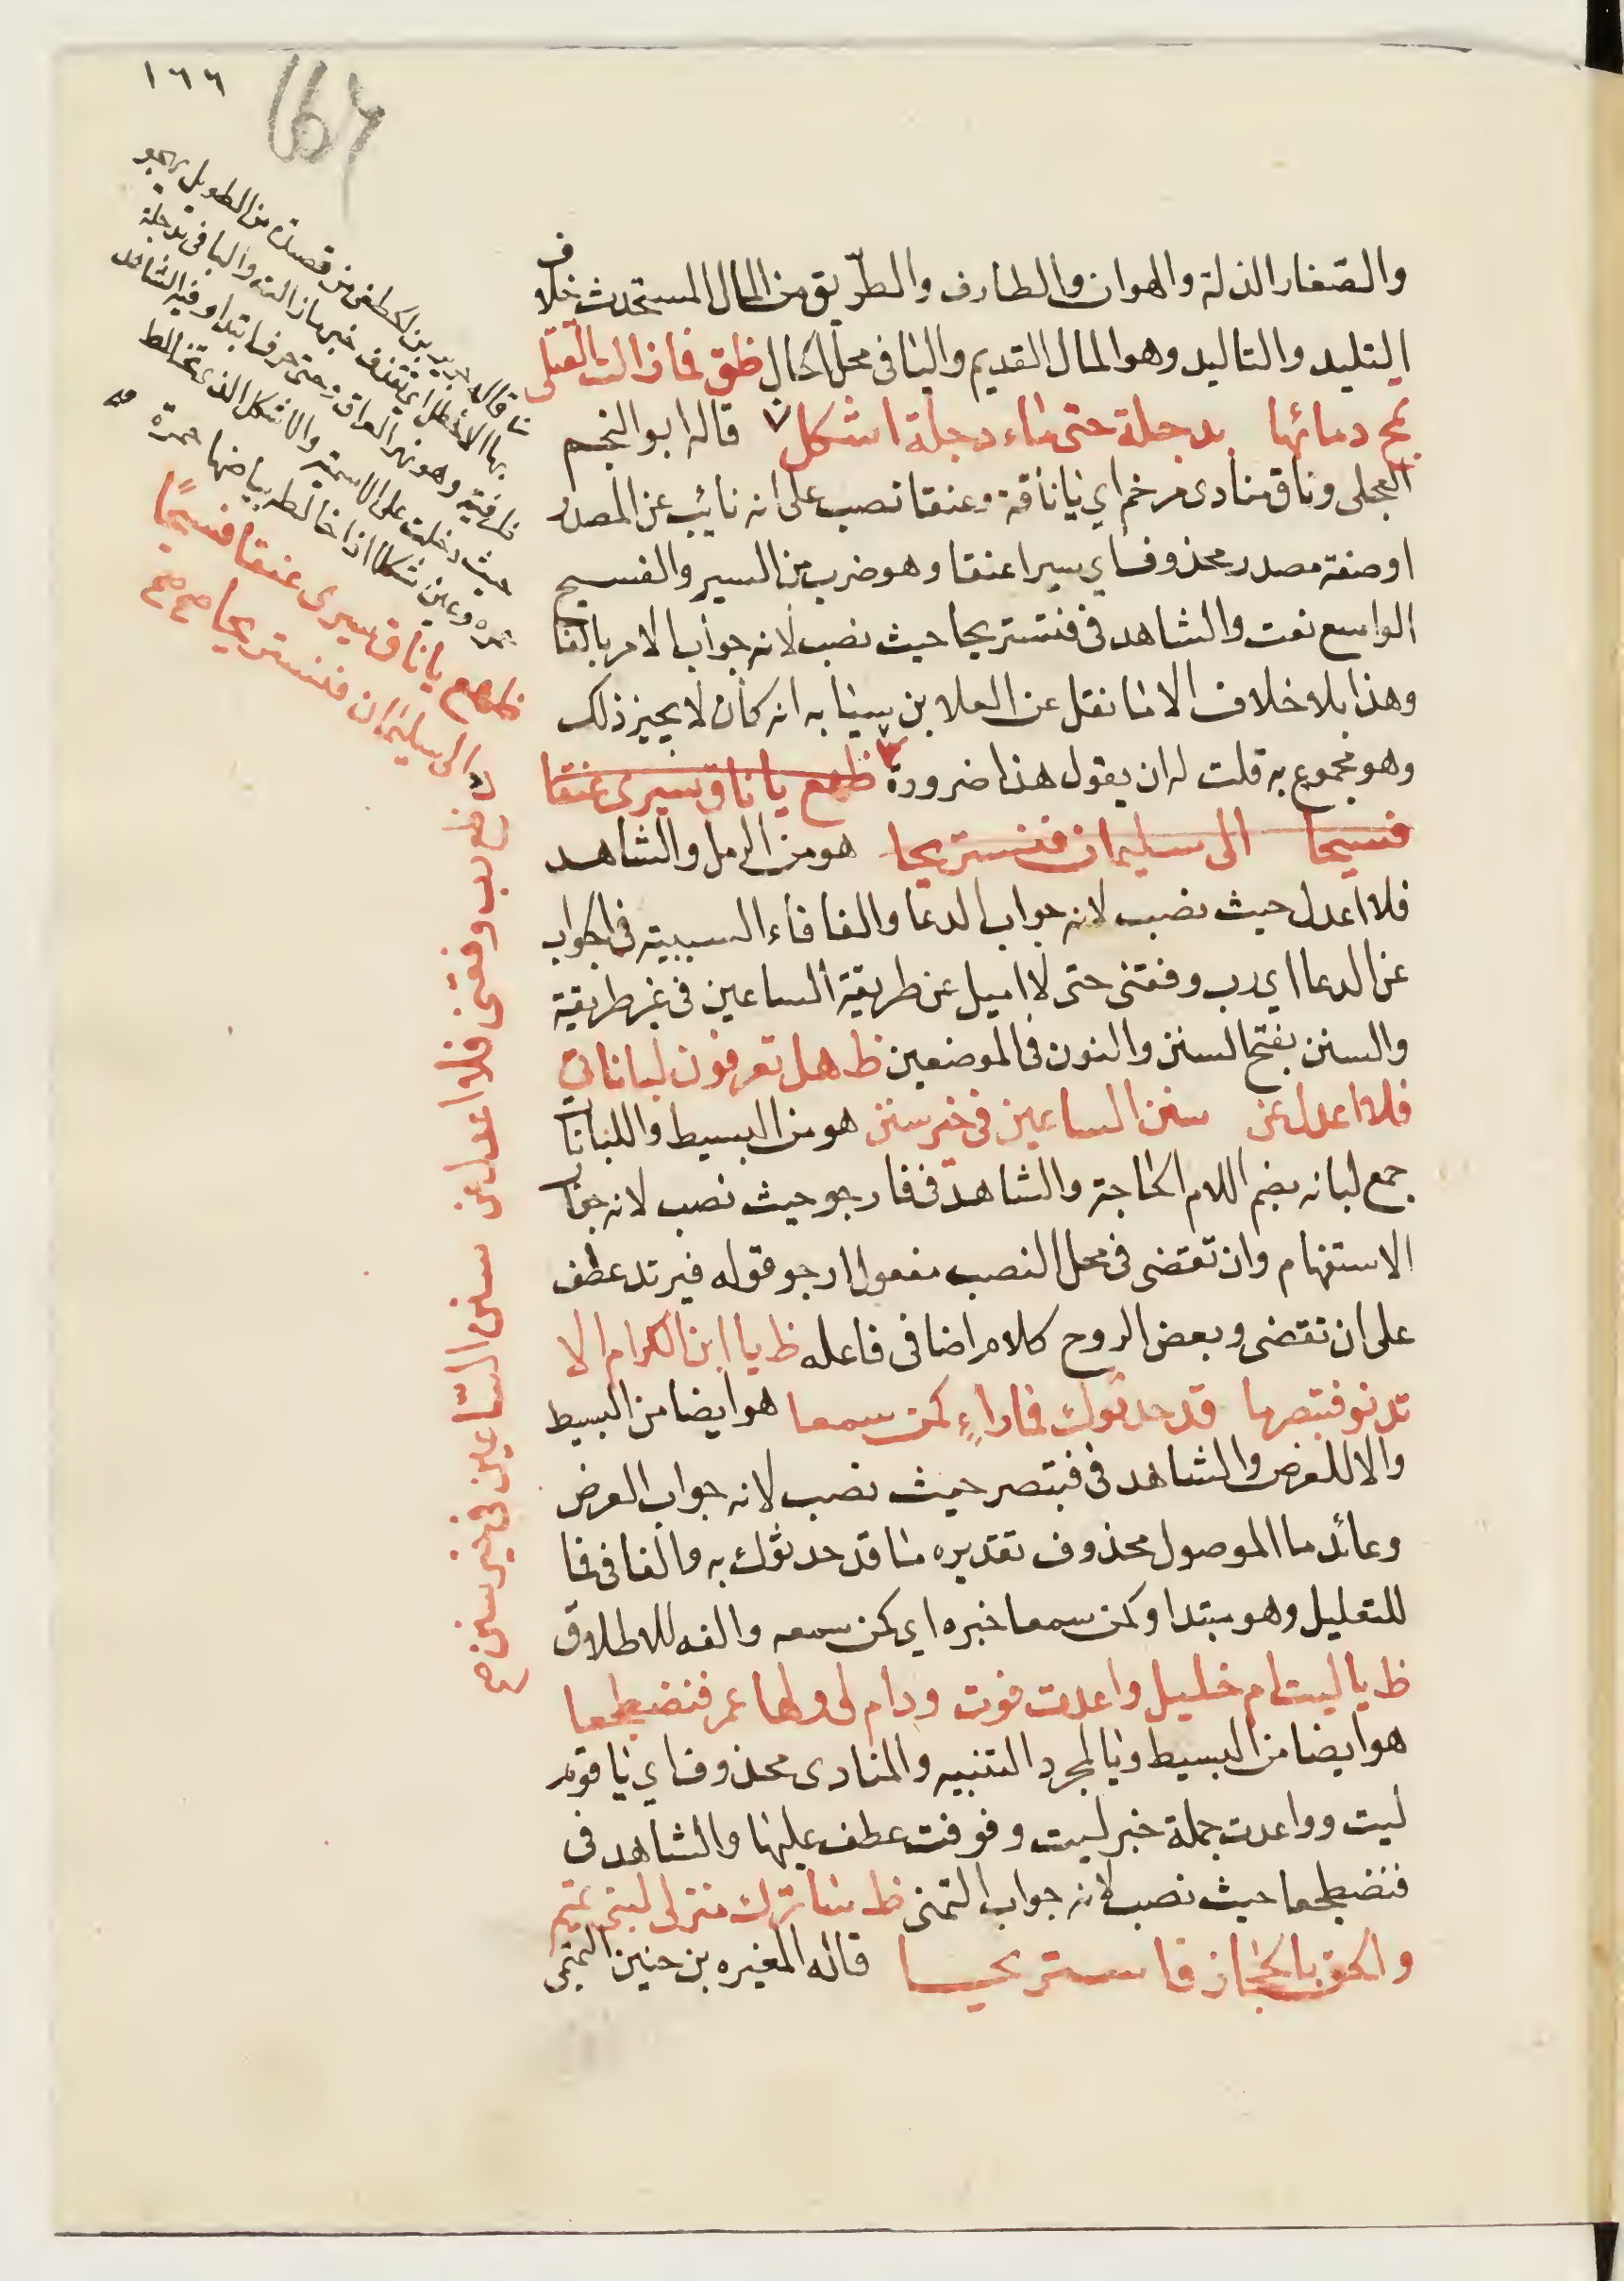 ١٦٦
166
والصّغار الذلة والهوان والطارف والطّريق من المال المستحدث خلاف
التليد والتاليد وهو المال القديم والبا في محل الحال ظق فما زالت القتلى
تمج دمائها بدجلة حتى ماء دجلة اشكل قاله ابو النجم
العجلى وناق منادى مرخم اي يا ناقة وعنقا نصب على انه نائب عن المصدر
او صفة مصدر محذوف اي سيرا عنقا وهو ضرب من السير والفسيح
الواسع نعت والشاهد في فنستريحا حيث نصب لانه جواب الامر بالفا
وهذا بلا خلاف الا ما نقل عن العلا بن سيابه انه كان لا يجيز ذلك
وهو محجوج به قلت له ان يقول هذا ضرورة ظهع يا ناق سيرى عنقا
فسيحا الى سليمان فنستريحا هو من الرمل والشاهد
فلا اعدل حيث نصب لانه جواب الدعا والفا فاء السببية في الجواب
عن الدعا اي رب وفقني حتى لا اميل عن طريقة الساعين في خير طريقة
والسنن بفتح السين والنون في الموضعين ظ هل تعرفون لباناتي
فلا اعدل عن سنن الساعين في خير سنن هو من البسيط واللبانات
جمع لبانه بضم اللام الحاجة والشاهد في فارجو حيث نصب لانه جواب
الاستفهام وان تقضى في محل النصب مفعول ارجو قوله فيرتد عطف
على ان تقضى وبعض الروح كلام اضافي فاعله ظ يا ابن الكرام الا
تدنو فتبصر ما قد حدثوك فما راءٍ كمن سمعا هو ايضا من البسيط
والا للعرض والشاهد في فتبصر حيث نصب لانه جواب العرض
وعائد ما الموصول محذوف تقديره ما قد حدثوك به والفا في فما
للتعليل وهو مبتدا وكمن سمعا خبره اي كمن سمعه والفه للاطلاق
ظ يا ليت ام خليل واعدت فوفت ودام لي ولها عمر فنصطجعا
هو ايضا من البسيط ويا لمجرد التنبيه والمنادى محذوف اي يا قوم
ليت وواعدت جملة خبر ليت وفوفت عطف عليها والشاهد في
فنصطجعا حيث نصب لانه جواب التمنى ظ ساترك منزلى لبنى تميم
والحق بالحجاز فاستريحا قاله المغيره بن حنين التميمى
قاله جرير بن الخطفى من قصيدة من الطويل يهجو
بها الاخطل اي تقذف خبر ما زالت والبا في بدجلة
ظرفية وهو نهر العراق وحتى حرف ابتدا وفيه الشاهد
حيث دخلت على الاسمية والاشكل الذي تخالط
حمره وعين شكلا اذا خالط بياضها حمرة
ظهع يا ناق سيرى عنقا فسيحًا
الى سليمان فنستريحا صح صح
ظع رب وفقني فلا اعدل عن سنن السّاعين في خير سنن صح